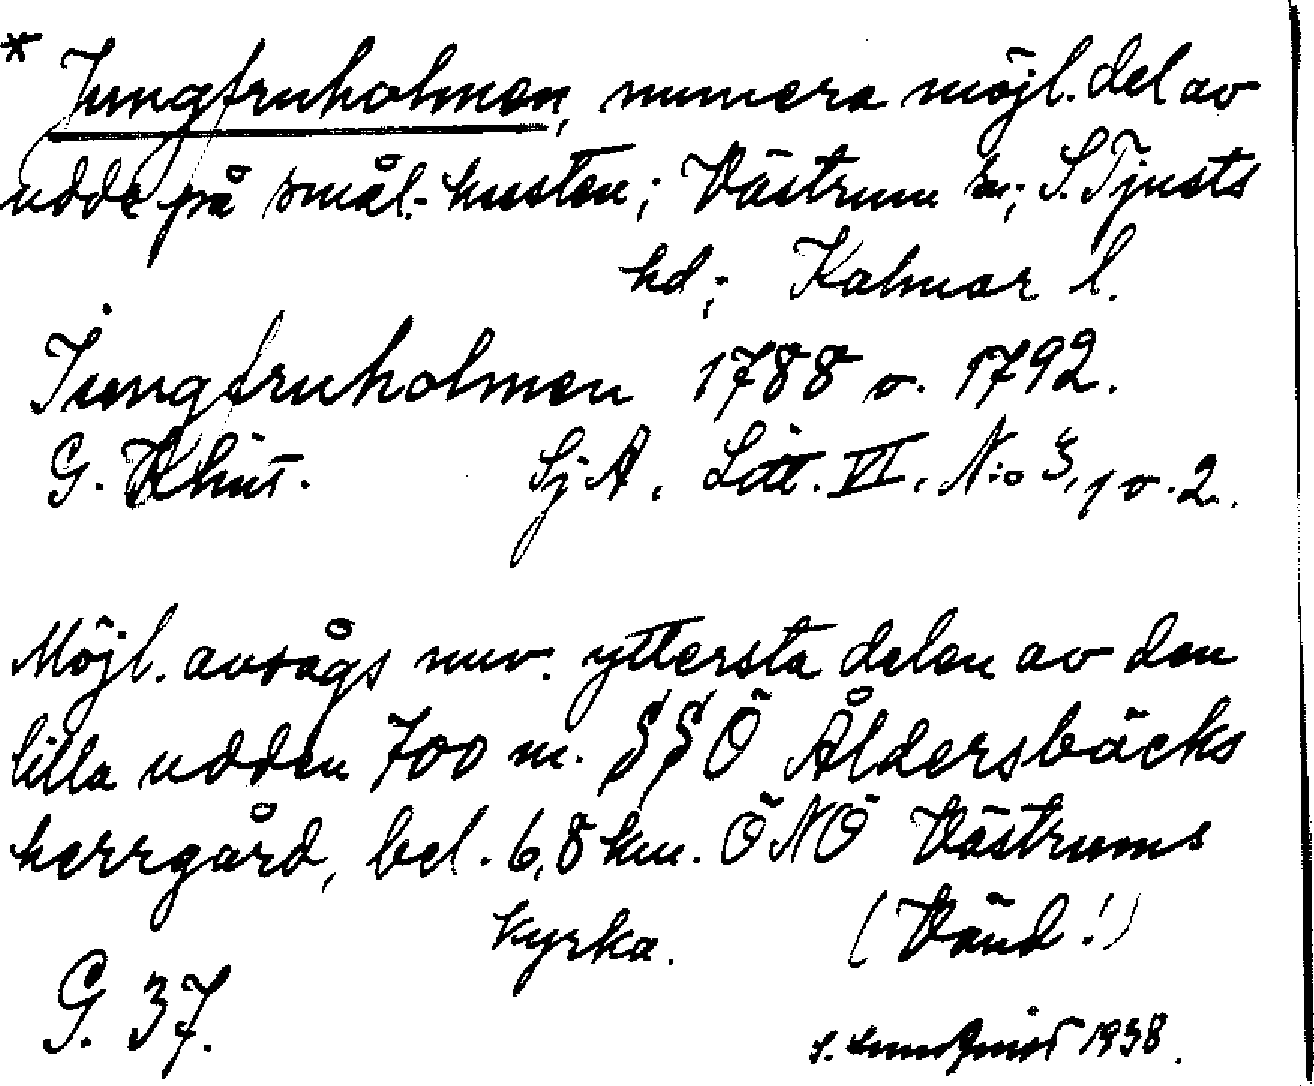 * Jungfruholmen, numera möjl. del av
udde på smål.-kusten; Västrum sn; S. Tjusts
hd; Kalmar l.
Jungfruholmen 1788 o. 1792.
G. Klint. SjA, Litt. VI, N:o 3, 1 o. 2.
Möjl. avsågs nuv. yttersta delen av den
lilla udden 700 m. SSÖ Åldersbäcks
herrgård, bel. 6,8 km. ÖNÖ Västrums
kyrka. (Vänd!)
G. 37.
1938.